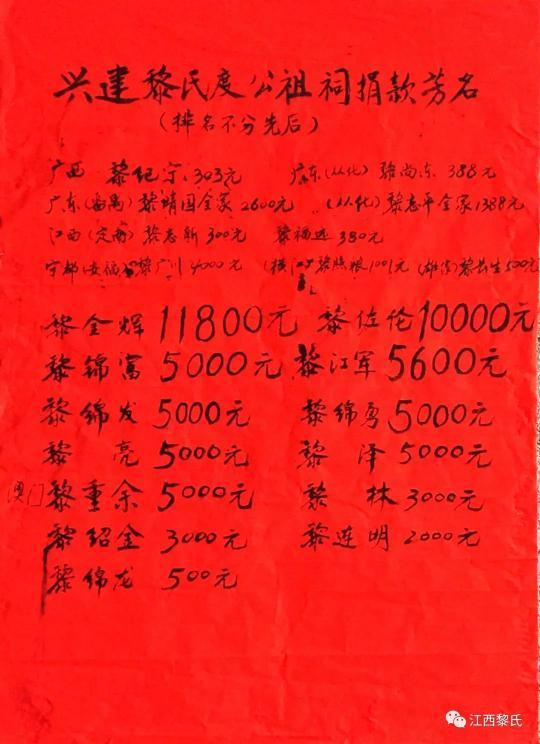 兴建黎氏度公祖祠捐款芳名
(排名不分先后)
广西 黎纪宗 303元 广东(从化) 黎尚东 388元
广东(番禺) 黎靖国全家 2600元 (从化) 黎志平全家 1388元
江西(定南) 黎志新 300元 黎福远 380元
宁都(安福) 黎广川 4000元 黎照粮 1001元 黎长生 500元
黎金辉 11800元 黎佐伦 10000元
黎锦富 5000元 黎江军 5600元
黎锦发 5000元 黎锦勇 5000元
黎亮 5000元 黎泽 5000元
澳门 黎重余 5000元 黎林 3000元
黎绍金 3000元 黎连明 2000元
黎锦龙 500元
江西黎氏